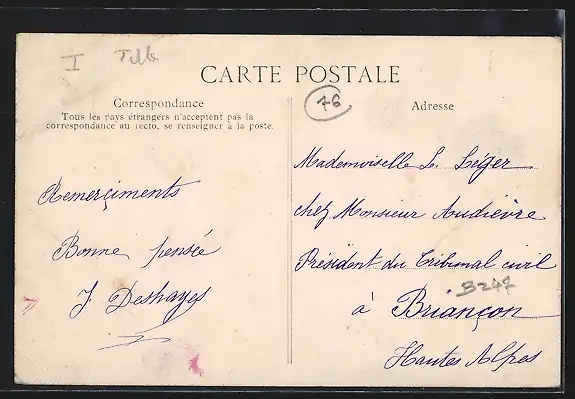 I
CARTE POSTALE
76
Correspondance
Tous les pays étrangers n'acceptent pas la
correspondance au recto, se renseigner à la poste.
Adresse
Remerçiments
Bonne pensée
J Deshayes
Mademoiselle L. Léger
chez Monsieur Audièvre
Président du Tribunal civil
B247
à Briançon
Hautes Alpes